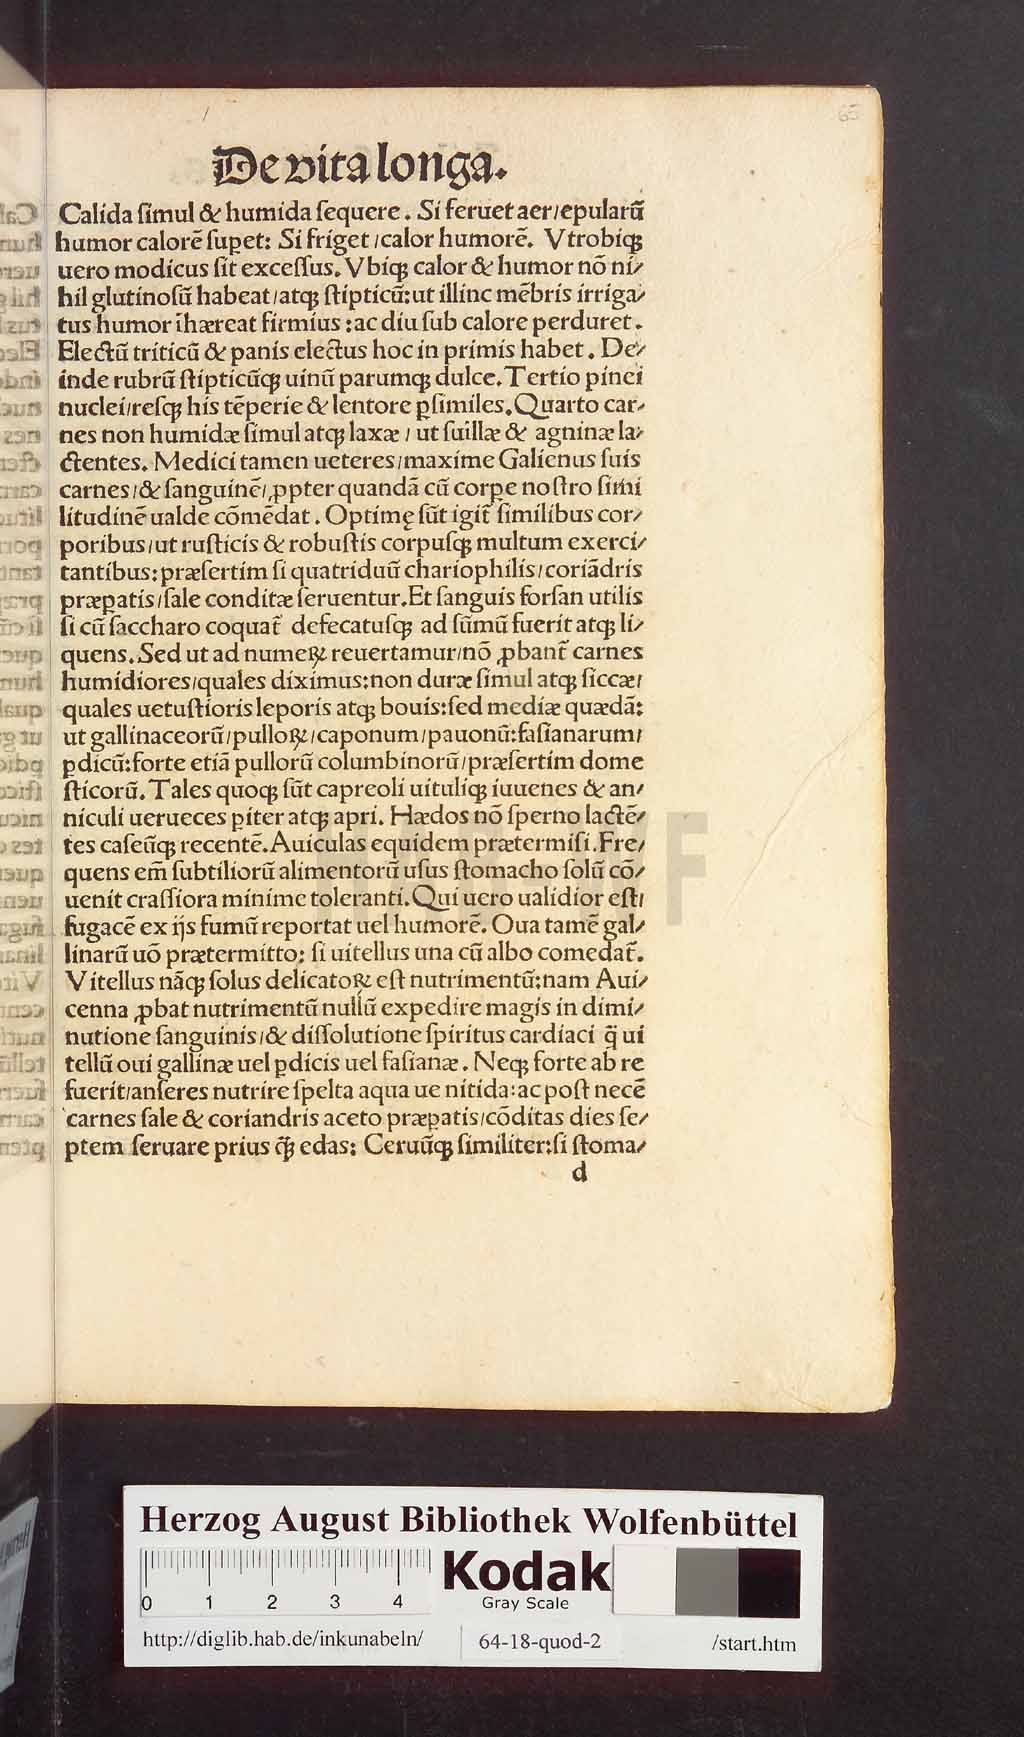 65
De vita longa.
Calida ſimul & humida ſequere. Si feruet aer/epularū
humor calorē ſuꝑet: Si friget/calor humorē. Vtrobiqꝫ
uero modicus ſit exceſſus. Vbiqꝫ calor & humor nō ni/
hil glutinoſū habeat/atqꝫ ſtipticū: ut illinc mēbris irriga/
tus humor īhæreat firmius: ac diu ſub calore perduret.
Electū triticū & panis electus hoc in primis habet. De/
inde rubrū ſtipticūqꝫ uinū parumqꝫ dulce. Tertio pinei
nuclei/reſqꝫ his tēperie & lentore ꝑſimiles. Quarto car/
nes non humidæ ſimul atqꝫ laxæ/ ut ſuillæ & agninæ la/
ctentes. Medici tamen ueteres/maxime Galienus ſuis
carnes/& ſanguinē/ꝓpter quandā cū corꝑe noſtro ſimi
litudinē ualde cōmēdat. Optimę ſūt igit̄ ſimilibus cor/
poribus/ut ruſticis & robuſtis corpuſqꝫ multum exerci/
tantibus: præſertim ſi quatriduū chariophilis/coriādris
præꝑatis/ſale conditæ ſeruentur. Et ſanguis forſan utilis
ſi cū ſaccharo coquat̄ defecatuſqꝫ ad ſūmū fuerit atqꝫ li/
quens. Sed ut ad numeꝝ reuertamur/nō ꝓbant̄ carnes
humidiores/quales diximus: non duræ ſimul atqꝫ ſiccæ/
quales uetuſtioris leporis atqꝫ bouis: ſed mediæ quædā:
ut gallinaceorū/pulloꝝ/caponum/pauonū: faſianarum/
ꝑdicū: forte etiā pullorū columbinorū/præſertim dome
ſticorū. Tales quoqꝫ ſūt capreoli uituliqꝫ iuuenes & an/
niculi uerueces ꝑiter atqꝫ apri. Hædos nō ſperno lactē/
tes caſeūqꝫ recentē. Auiculas equidem prætermiſi. Fre/
quens em̄ ſubtiliorū alimentorū uſus ſtomacho ſolū cō/
uenit craſſiora minime toleranti. Qui uero ualidior eſt/
fugacē ex ijs fumū reportat uel humorē. Oua tamē gal/
linarū uō prætermitto: ſi uitellus una cū albo comedat̄.
Vitellus nāqꝫ ſolus delicatoꝝ eſt nutrimentū: nam Aui/
cenna ꝓbat nutrimentū nullū expedire magis in dimi/
nutione ſanguinis/& diſſolutione ſpiritus cardiaci q̄ ui
tellū oui gallinæ uel ꝑdicis uel faſianæ. Neqꝫ forte ab re
fuerit/anſeres nutrire ſpelta aqua ue nitida: ac poſt necē
carnes ſale & coriandris aceto præꝑatis/cōditas dies ſe/
ptem ſeruare prius q̄ꝫ edas: Ceruūqꝫ ſimiliter: ſi ſtoma/
d
HAB WF
Herzog August Bibliothek Wolfenbüttel
0 1 2 3 4
Kodak
Gray Scale
http://diglib.hab.de/inkunabeln/ 64-18-quod-2 /start.htm